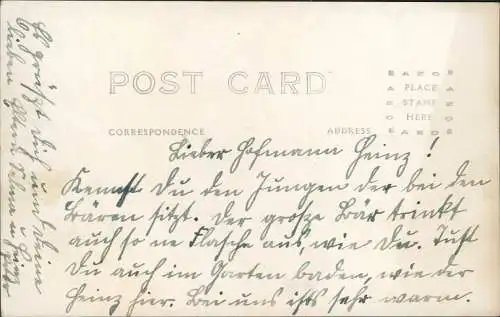 POST CARD
AZO AZO
PLACE
STAMP
HERE
AZO AZO
CORRESPONDENCE
ADDRESS
Lieber Hofmann Heinz!
Kennst Du den Jungen der bei den
Bären sitzt. Der große Bär trinkt
auch so ne Flasche aus, wie Du. Tust
Du auch im Garten baden, wie der
Heinz hier. Bei uns ists sehr warm.
Es grüßt Dich und Deine
lieben Eltern Selma u. Heinz